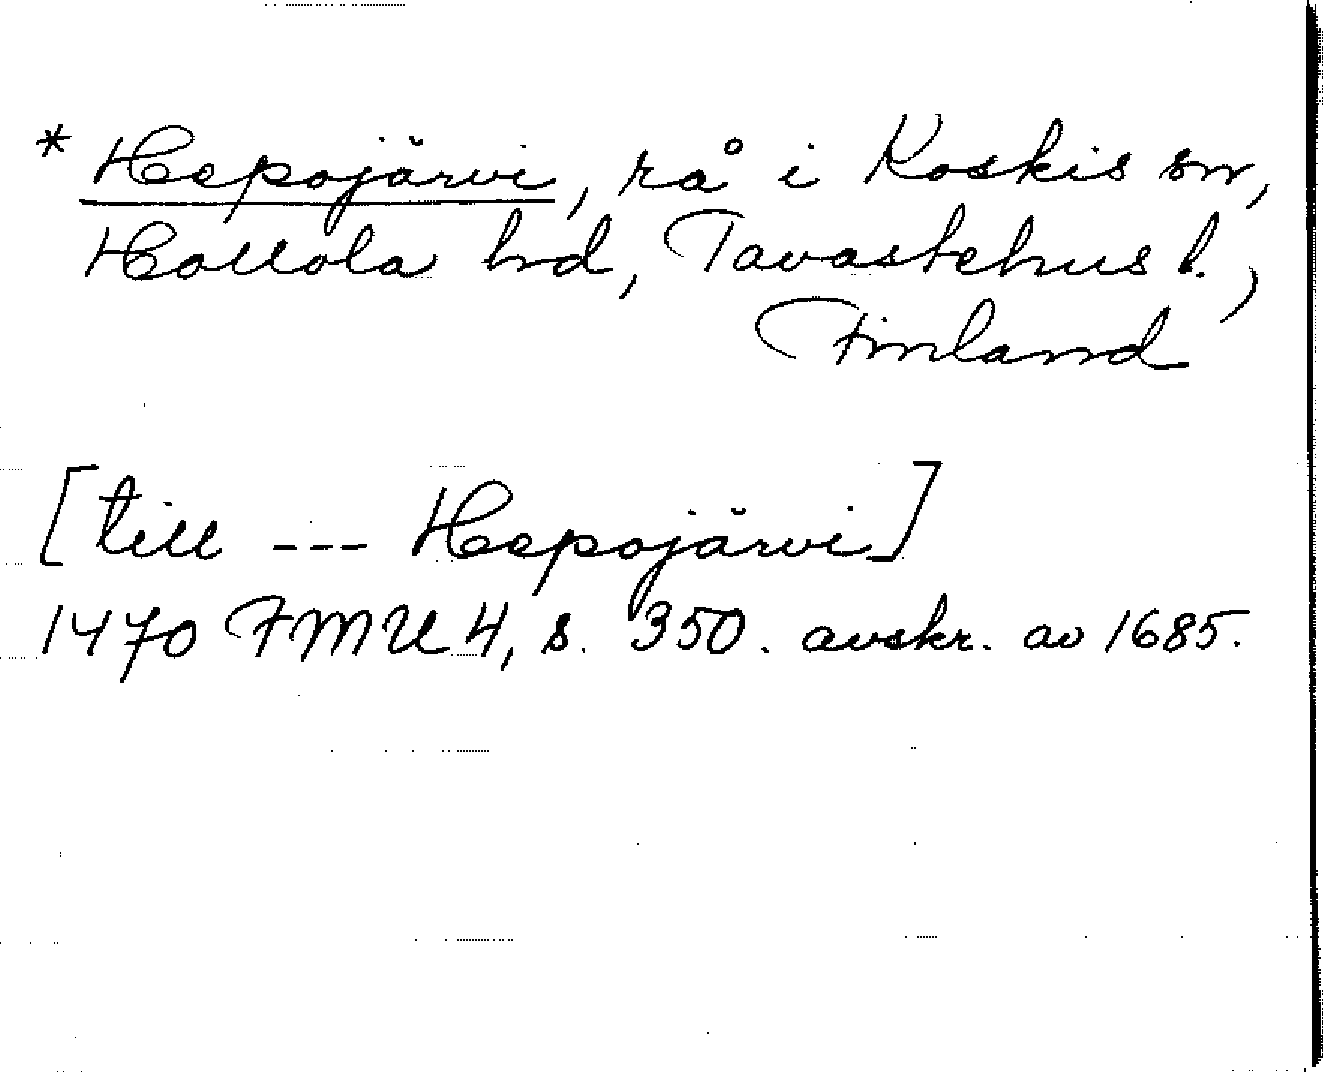 * Hepojärvi, rå i Koskis sn,
Hollola hd, Tavastehus l.,
Finland
[till --- Hepojärvi]
1470 FMU 4, s. 350. avskr. av 1685.